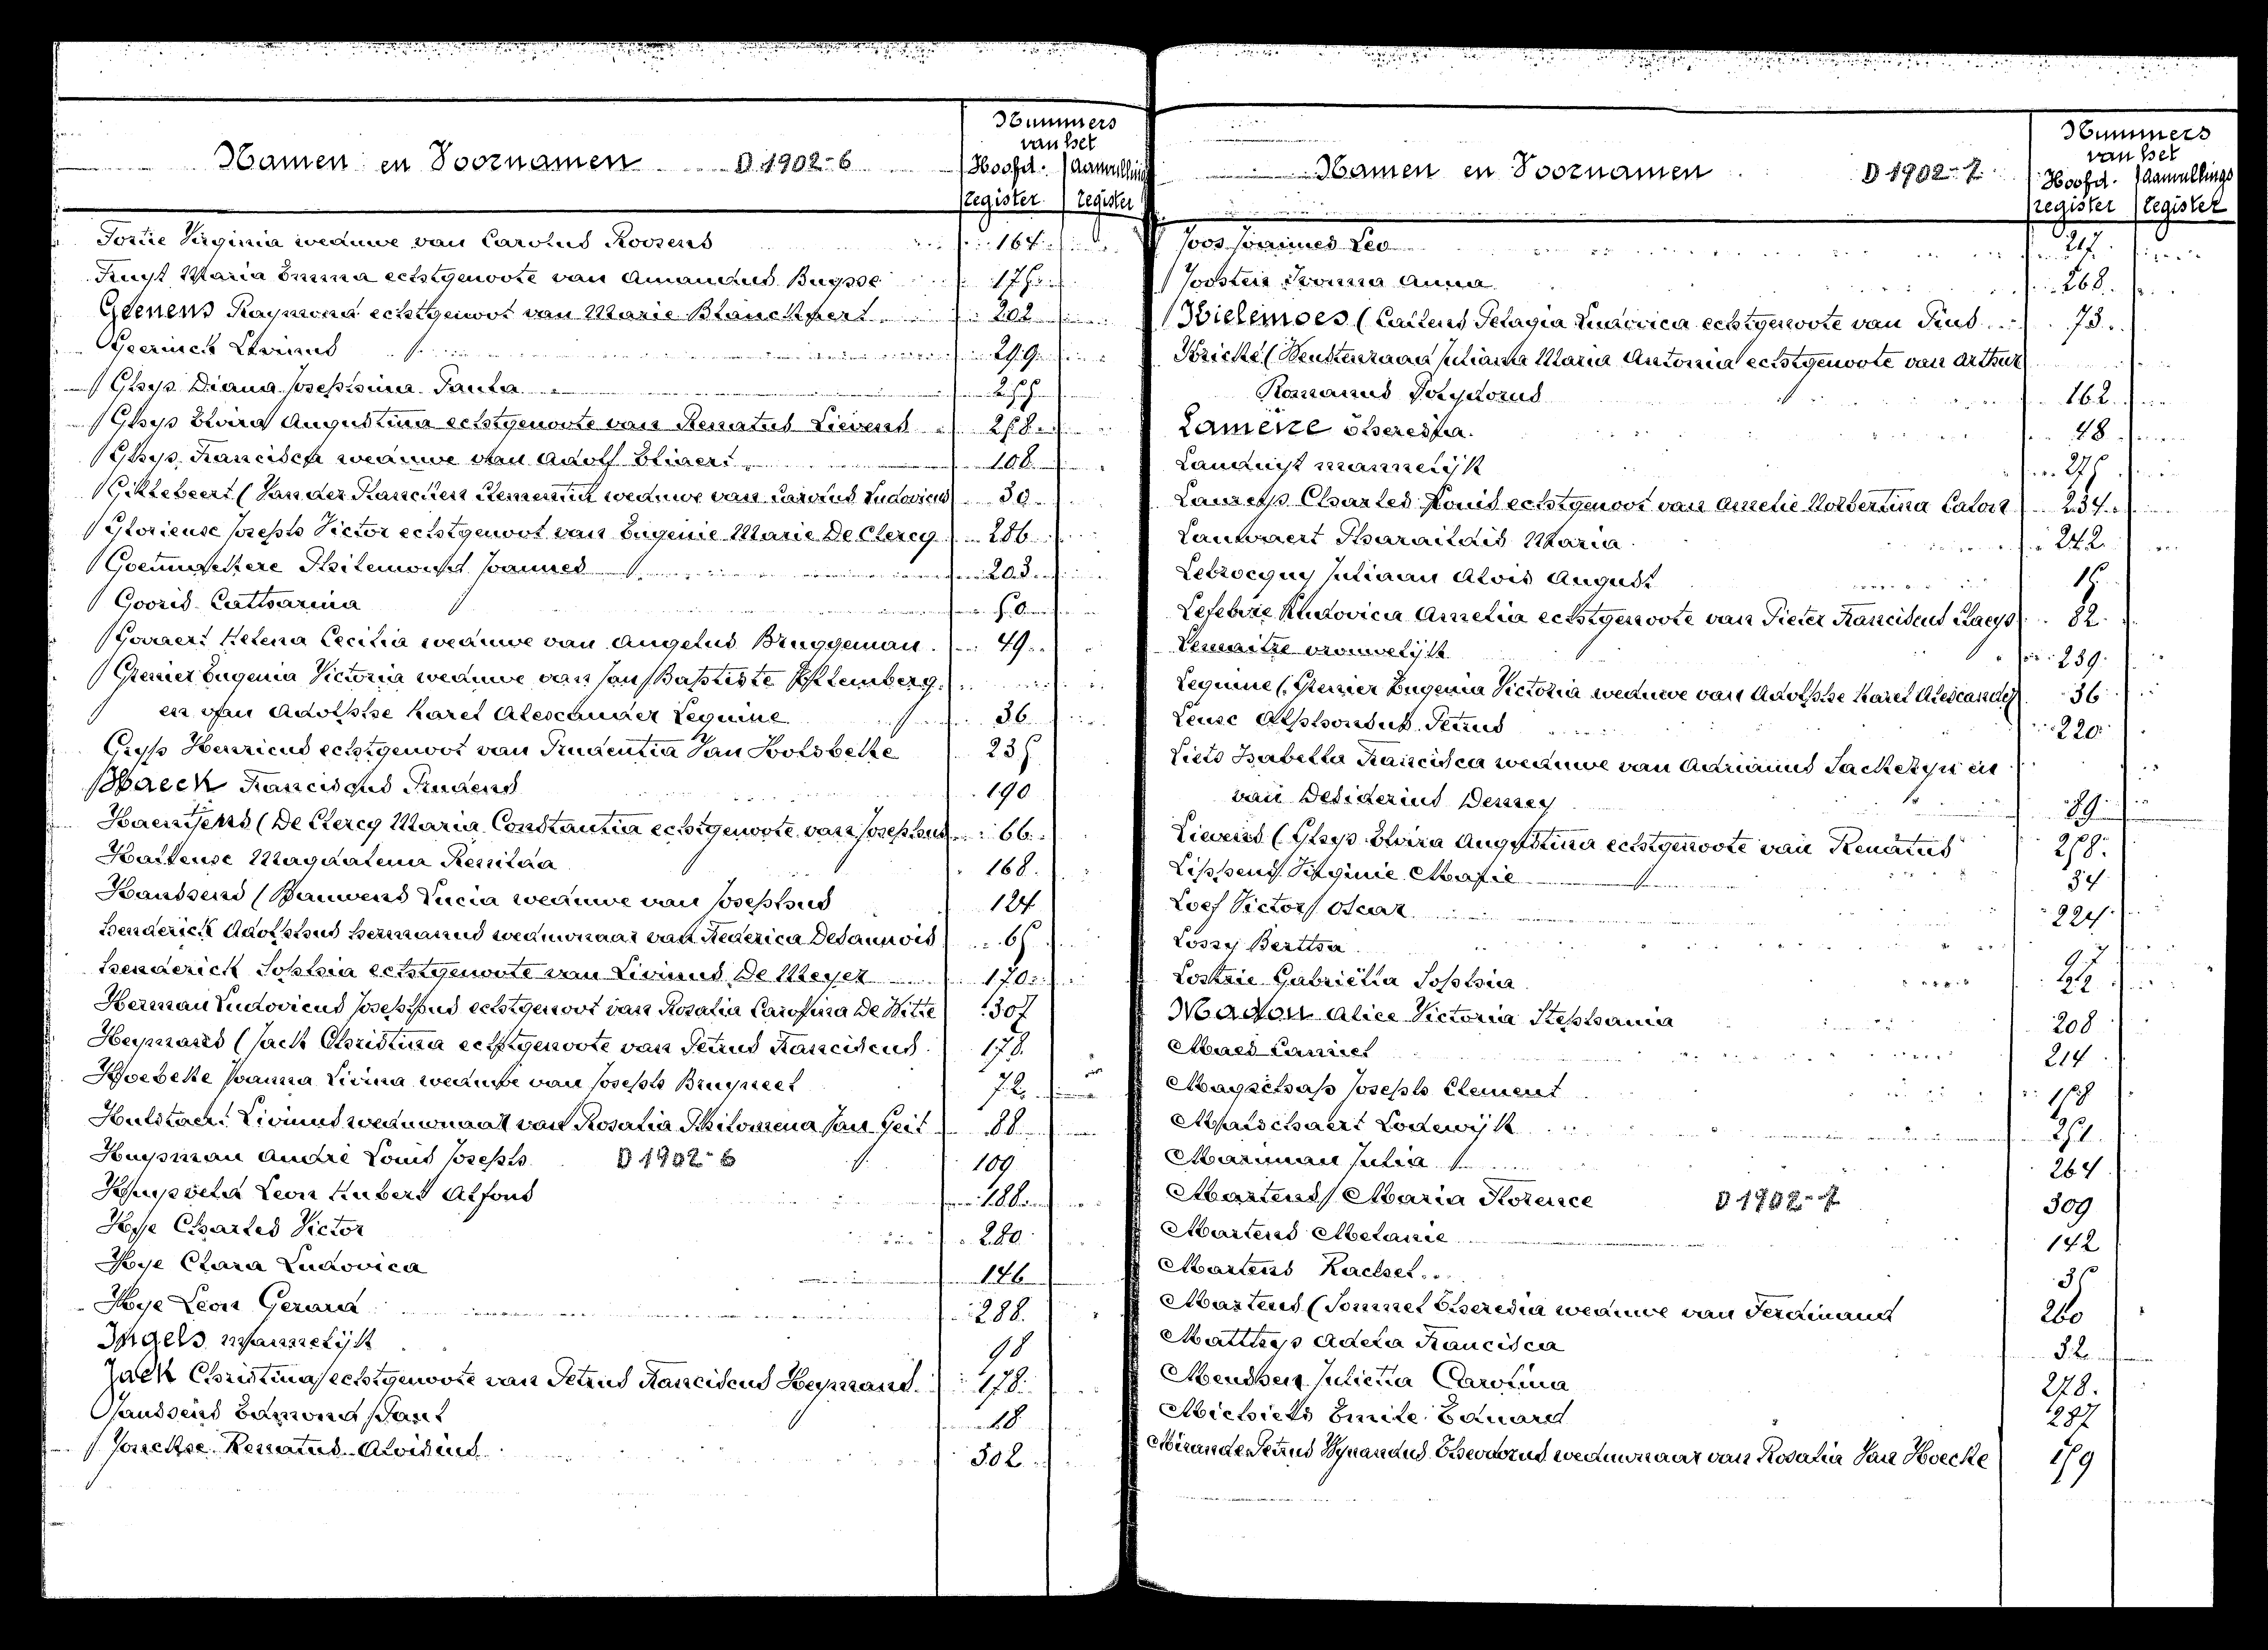 Namen en Voornamen D 1902-6
Nummers
van het
Hoofd. Aanvullings
register register
Virginia weduwe van Carolus Roosens 164
Maria Emma echtgenoote van Amandus Buysse
Geenens Raymond echtgenoot van Marie Blanckaert 202
Geerinck Livinus 299
Ghys Diana Josephina Paula 255
Ghys Elvira Augustina echtgenoote van Renatus Lievens 258
Ghys Francisca weduwe van Adolf 108
(Van der weduwe van Carolus Ludovicus 30
Glorieuse Joseph Victor echtgenoot van Eugenie Marie De Clercq 286
Joannes 203
Gooris Catharina 50
Govaert Helena Cecilia weduwe van Angelus Bruggeman 49
Grenier Eugenia Victoria weduwe van Jan Baptiste
en van Adolphe Karel Alexander Lequime 36
Gyps Henricus echtgenoot van Prudentia Van Holsbeke 235
Haeck Franciscus Prudens 190
Haentjens (De Clercq Maria Constantia echtgenoote van Josephus 66
Magdalena Renilda 168
Hanssens (Bauwens Lucia weduwe van Josephus 124
Henderick Adolphus Hermanus weduwnaar van Frederica Desannois 65
Henderick Sophia echtgenoote van Livinus De Meyer 170
Herman Ludovicus Josephus echtgenoot van Rosalia Carolina De Witte 307
Heymans (Jack Christina echtgenoote van Petrus Franciscus 178
Hoebeke Joanna Livina weduwe van Joseph Bruyneel 72
Hulstaert Livinus weduwnaar van Rosalia Philomena Van Geit 88
Huysman André Louis Joseph D 1902-6 109
Leon Hubert Alfons 188
Hye Charles Victor 280
Hye Clara Ludovica 146
Hye Leon Gerard 288
Ingels mannelijk 98
Jack Christina echtgenoote van Petrus Franciscus Heymans 178
Janssens Edmond Paul 18
Jonckhe Renatus Aloisius 302
Namen en Voornamen D 1902-7
Nummers
van het
Hoofd. Aanvullings
register register
Joos Joannes Leo 217
Joosten Ivonna Anna 268
Kielemoes (Callens Pelagia Ludovica echtgenoote van Pius 73
Kricke (Juliana Maria Antonia echtgenoote van Arthur
Romanus Polydorus 162
Lameire Theresia 48
mannelijk 275
Laureys Charles Louis echtgenoot van Amelie Norbertina Calon 234
Lauwaert Pharaildis Maria 242
Lebrocquy Juliaan Alois August 15
Lefebvre Ludovica Amelia echtgenoote van Pieter Franciscus Claeys 82
Lemaitre vrouwelijk 239
Lequime (Grenier Eugenia Victoria weduwe van Adolphe Karel Alexander 36
Leuse Alphonsus Petrus 220
Liets Isabella Francisca weduwe van Adrianus en
van Desiderius 89
Lievens (Ghys Elvira Augustina echtgenoote van Renatus 258
Lippens Virginie Marie 34
Loef Victor Oscar 224
Lossy Bertha 97
Loskie Gabriëlla Sophia 22
Madou Alice Victoria Stephania 208
Maes Camiel 214
Joseph Clement 158
Manschaert Lodewijk 251
Mariman Julia 264
Martens Maria Florence D 1902-7 309
Martens Melanie 142
Martens Rachel 35
Martens (Sommel Theresia weduwe van Ferdinand 260
Matthys Adela Francisca 32
Julietta Carolina 278
Michiels Emile Eduard 287
Mirande Petrus Wynandus Theodorus weduwnaar van Rosalia Van Hoecke 159